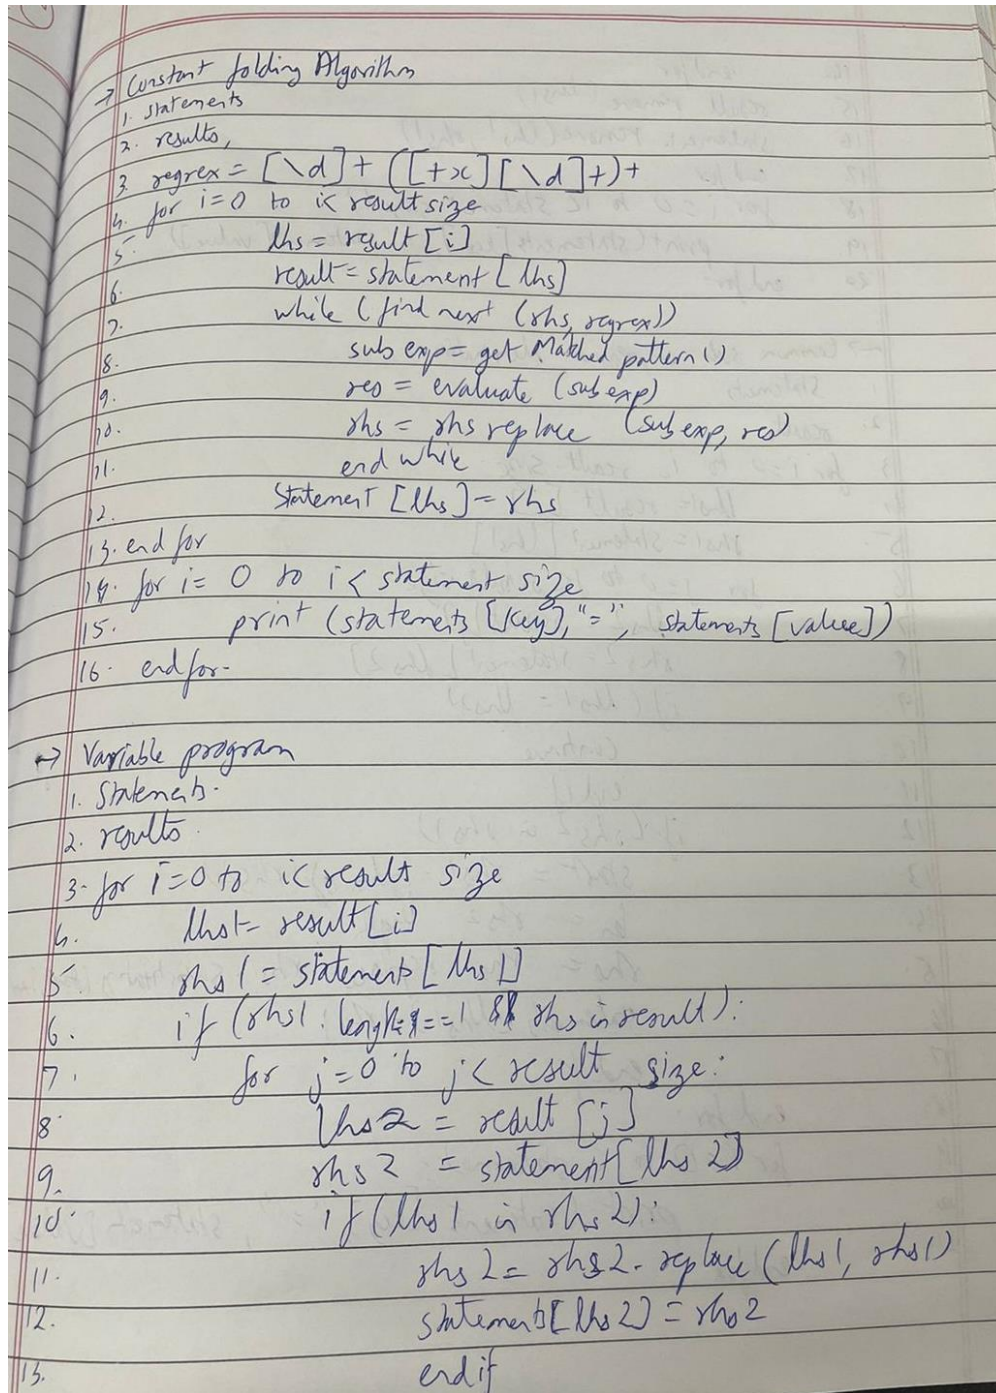 → Constant folding Algorithm
1. statements
2. results,
3. regrex = [\d]+ ([+x][\d]+)+
4. for i=0 to i< result size
5. lhs = result [i]
6. result = statement [lhs]
7. while (find next (rhs, regrex))
8. sub exp = get Matched pattern()
9. res = evaluate (sub exp)
10. rhs = rhs replace (sub exp, res)
11. end while
12. Statement [lhs] = rhs
13. end for
14. for i = 0 to i < statement size
15. print (statements [key], "=", statements [value])
16. end for-
→ Variable program
1. Statements.
2. results.
3- for i=0 to i< result size
4. lhs1= result [i]
5 rhs 1 = statements [lhs 1]
6. if (rhs1. length == 1 && rhs in result):
7. for j=0 to j< result size:
8 lhs2 = result [j]
9. rhs 2 = statement [lhs 2]
10. if (lhs 1 in rhs 2):
11. rhs 2 = rhs 2. replace (lhs 1, rhs1)
12. statements [lhs 2] = rhs 2
13. end if